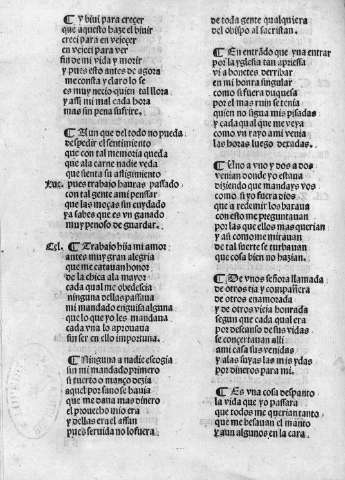 ¶ Y biui para creçer
que aquesto haze el biuir
creci para en vejeçer
en vejeci para ver
fin de mi vida y morir
y pues esto antes de agora
me consta y claro lo se
es muy necio quien tal llora
y assi mi mal cada hora
mas sin pena sufrire.
¶ Aun que del todo no pueda
despedir el sentimiento
que con tal memoria queda
que ala carne nadie veda
que sienta su afligimiento
Luc. pues trabajo hauras passado
con tal gente ami penssar
que las moças sin cuydado
ya sabes que es vn ganado
muy penoso de guardar.
Cel. ¶ Trabajo hija mi amor
antes muy gran alegria
que me catauan honor
de la chica ala mayor
cada qual me obedescia
ninguna dellas passaua
mi mandado en guisa alguna
que lo que yo les mandaua
cada vna lo aprouaua
sin ser en ello importuna.
¶ Ninguna a nadie escogia
sin mi mandado primero
si tuerto o manco dezia
aquel por sano se hauia
que me daua mas dinero
el prouecho mio era
y dellas era el affan
pues seruida no lo fuera
de toda gente qualquiera
del obispo al sacristan.
¶ En entrãdo que yua entrar
por la yglesia tan apriessa
vi a bonetes derribar
en mi honra singular
como si fuera duquesa
por el mas ruin se tenia
quien no sigua mis pisadas
y cada qual que me veya
como vn rayo ami venia
las horas luego dexadas.
¶ Uno a vno y dos a dos
venian donde yo estaua
diziendo que mandays vos
como si yo fuera dios
que a redemir los baraua
con esto me preguntauan
por las que ellos mas querian
y añ como me mirauan
de tal suerte se turbauan
que cosa bien no hazian.
¶ De vnos señora llamada
de otros tia y compañera
de otros enamorada
y de otros vieja honrada
segun que cada qual era
por descanso de sus vidas
se concertauan alli
ami casa sus venidas
y alas suyas las mis ydas
por dineros para mi.
¶ Es vna cosa despanto
la vida que yo passara
que todos me querian tanto
que me besauan el manto
y aun algunos en la cara.